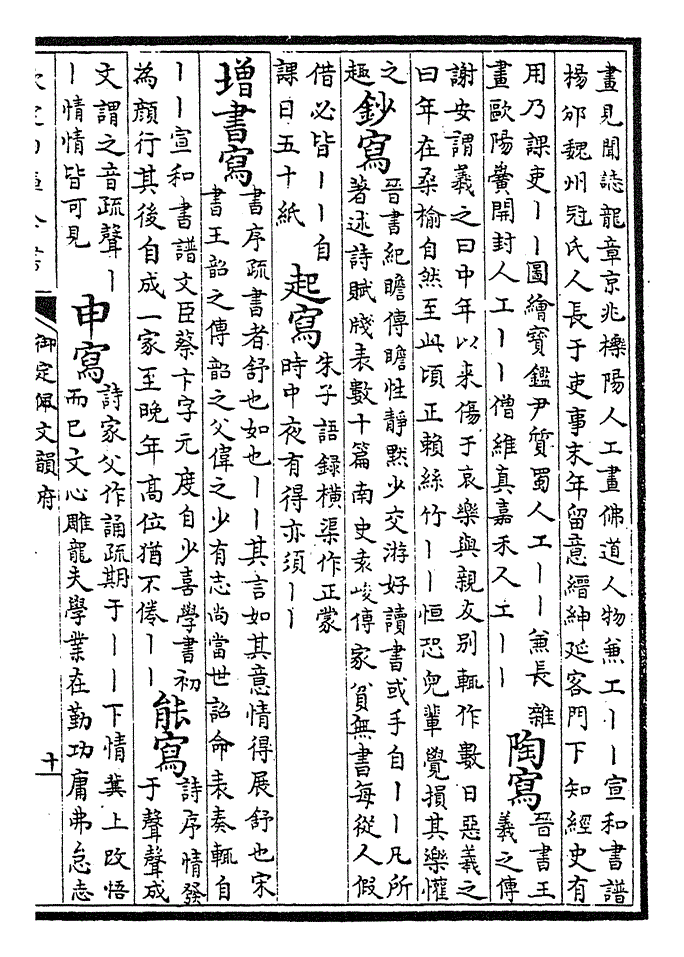 畫見聞誌龍章京兆櫟陽人工畫佛道人物兼工丨丨宣和書譜
楊邠魏州冠氏人長于吏事末年留意縉紳延客門下知經史有
用乃課吏丨丨圖繪寳鑑尹質蜀人工丨丨兼長雜
畫歐陽黌開封人工丨丨僧維真嘉禾人工丨丨
陶寫
晉書王
羲之傳
謝安謂羲之曰中年以來傷于哀樂與親友別輒作數日惡羲之
曰年在桑榆自然至此頃正賴絲竹丨丨恒恐兒輩覺損其樂懽
之
趣
鈔寫
晉書紀瞻傳瞻性靜黙少交游好讀書或手自丨丨凡所
著述詩賦牋表數十篇南史袁峻傳家貧無書每從人假
借必皆丨丨自
課日五十紙
起寫
朱子語録橫渠作正蒙
時中夜有得亦須丨丨
増書寫
書序疏書者舒也如也丨丨其言如其意情得展舒也宋
書王韶之傳韶之父偉之少有志尚當世詔命表奏輒自
丨丨宣和書譜文臣蔡卞字元度自少喜學書初
為顔行其後自成一家至晚年高位猶不倦丨丨
能寫
詩序情發
于聲聲成
文謂之音疏聲丨
丨情情皆可見
申寫
詩家父作誦疏期于丨丨下情冀上改悟
而已文心雕龍夫學業在勤功庸弗怠志
御定佩文韻府
十